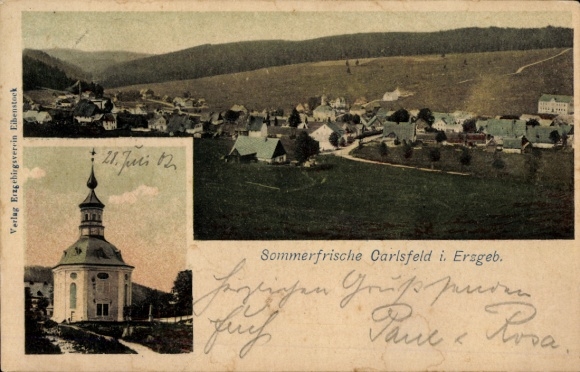 Verlag Erzgebirgsverein Eibenstock
21. Juli 02
Sommerfrische Carlsfeld i. Erzgeb.
Herzlichen Gruß senden
Euch Paul u. Rosa.